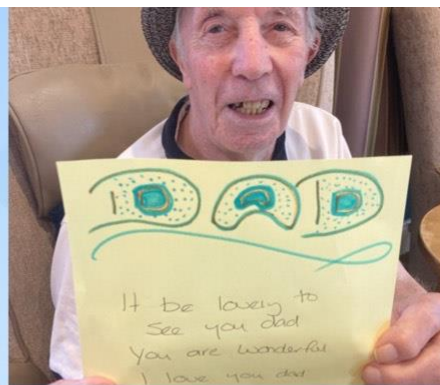 DAD
It be lovely to
see you dad
You are wonderful
I love you dad